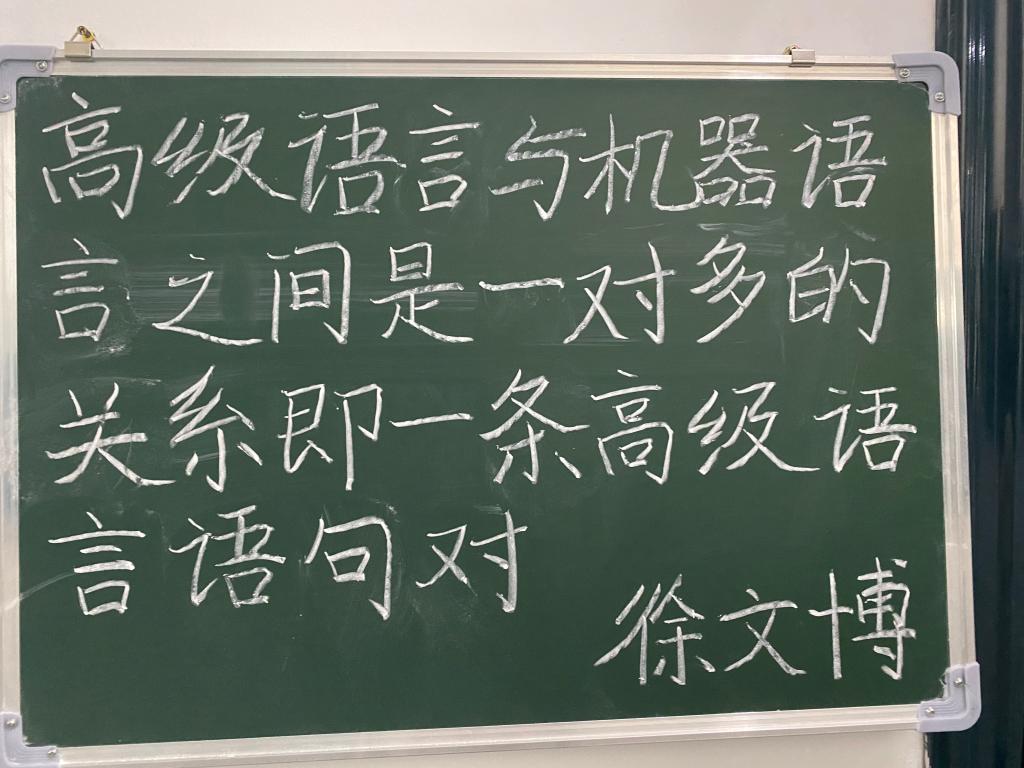 高级语言与机器语
言之间是一对多的
关系即一条高级语
言语句对
徐文博